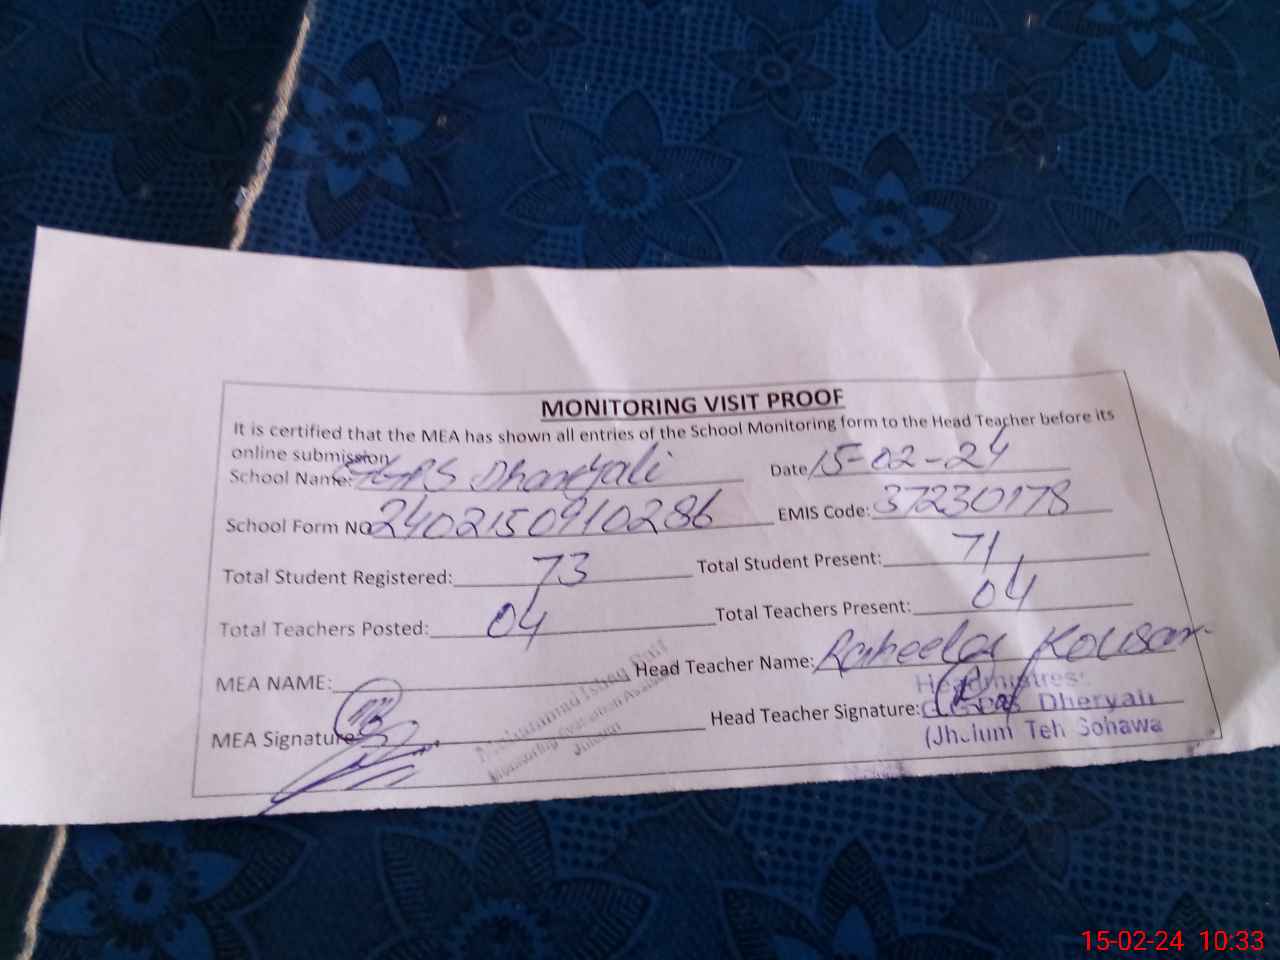 MONITORING VISIT PROOF
It is certified that the MEA has shown all entries of the School Monitoring form to the Head Teacher before its
online submission
School Name: GGPS Date 15-02-24
School Form No 2402150910286 EMIS Code: 37230178
Total Student Registered: 73 Total Student Present: 71
Total Teachers Posted: 04 Total Teachers Present: 04
MEA NAME: Head Teacher Name: Raheela Kousar
MEA Signature Head Teacher Signature:
Muhammad
Monitoring Evaluation Assis
Jhelum
Headmistres
GGPS Dheryali
(Jhelum Teh Sohawa
15-02-24 10:33